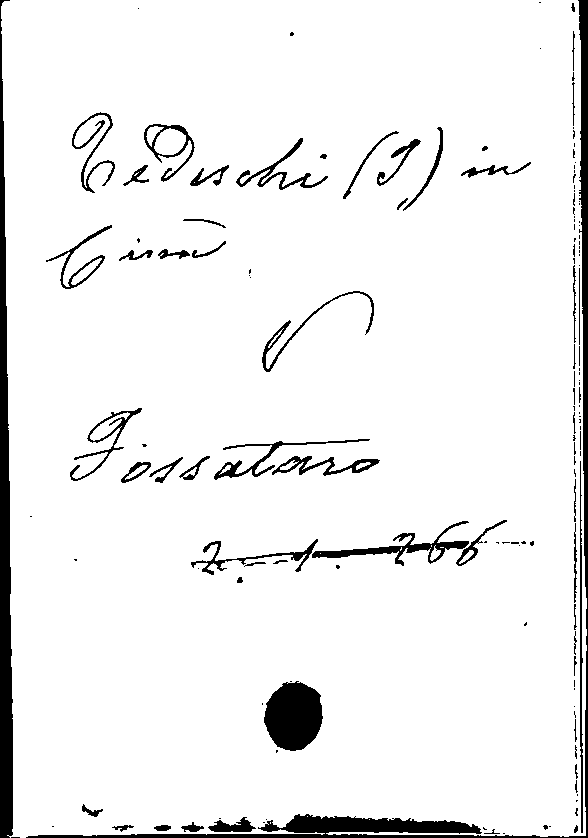 Tedeschi (I.) in
Cimò
V
Fossataro
2. 1. 266